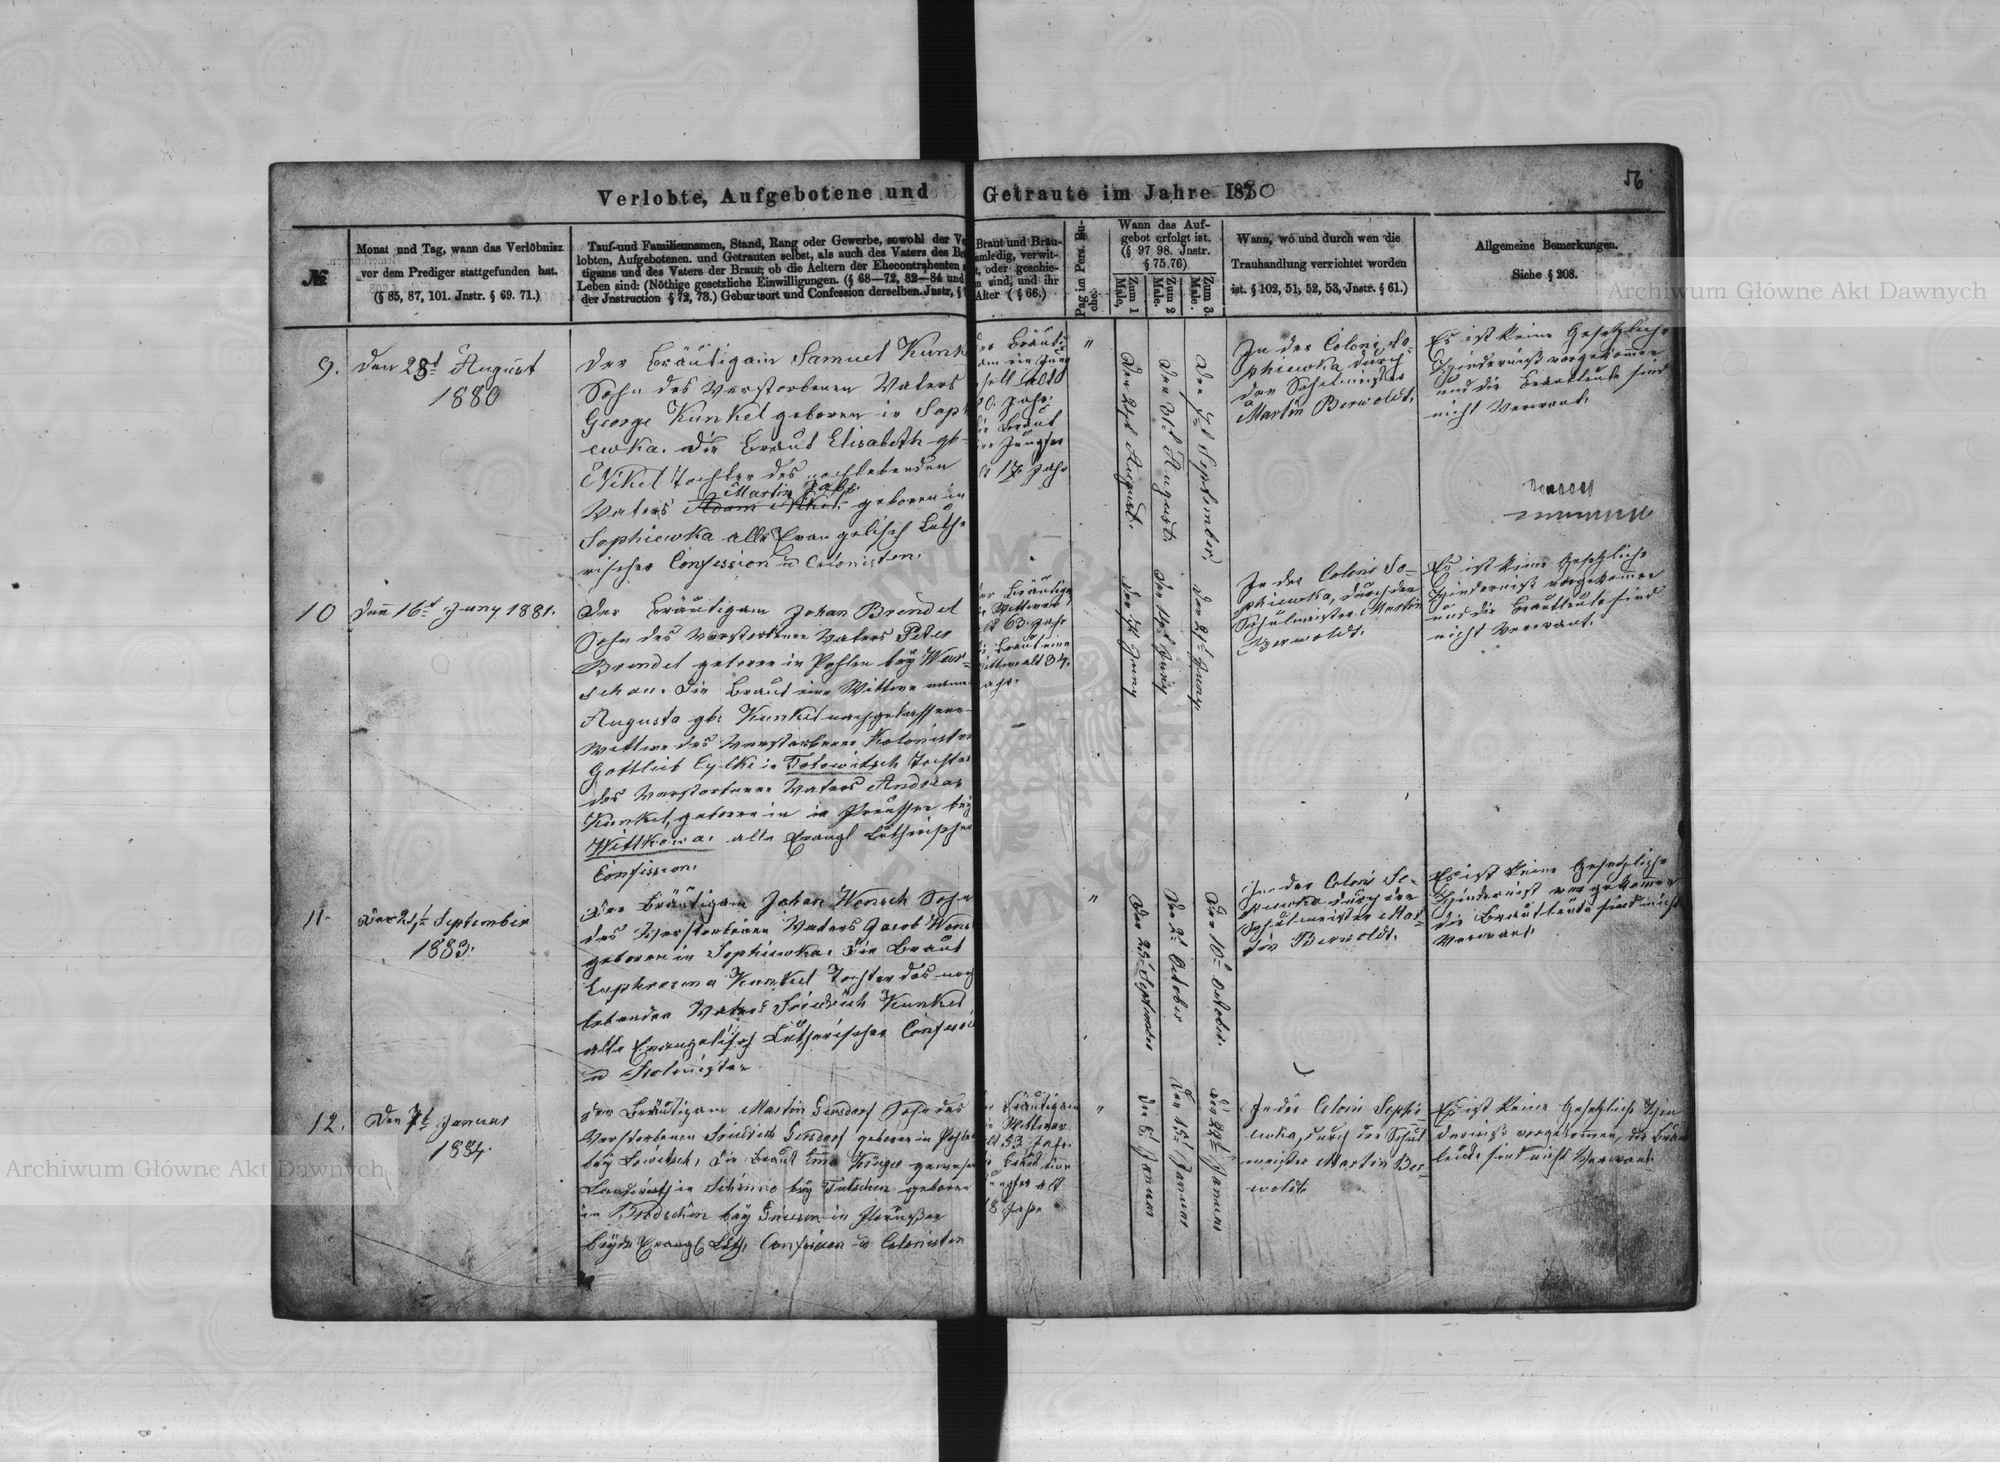 56
Verlobte, Aufgebotene und Getraute im Jahre 1880
№
Monat und Tag, wann das Verlöbnisz
vor dem Prediger stattgefunden hat.
(§ 85, 87, 101. Jnstr. § 69. 71.)
Tauf-und Familiennamen, Stand, Rang oder Gewerbe, sowohl der
lobten, Aufgebotenen und Getrauten selbst, als auch des Vaters des
tigams und des Vaters der Braut; ob die Aeltern der Ehecontrahenten
Leben sind: (Nöthige gesetzliche Einwilligungen. (§ 68—72, 82—84 und
der Jnstruction § 72, 73.) Geburtsort und Confession derselben. Jnstr. §
Braut und Bräu-
ledig, verwit-
oder geschie-
sind, und ihr
Alter ( § 66.)
Pag im Pers. Bu-
che.
Wann das Auf-
gebot erfolgt ist.
(§ 97 98. Jnstr.
§ 75.76)
Zum 1
Male.
Zum 2
Male.
Zum 3.
Male.
Wann, wo und durch wen die
Trauhandlung verrichtet worden
ist. § 102, 51, 52, 53, Jnstr. § 61.)
Allgemeine Bemerkungen.
Siehe § 208.
9.
den 23t August
1880
Der Bräutigam Samuel Kunk
Sohn des Verstorbenen Vaters
George Kunkel geboren in Soph
ewka. die Braut Elisabeth gb-
Nikel Tochter des nachlebenden
Martin
Vaters Adam Nikel geboren in
Sophiewka alle Evangelisch Luthe
rischer Confession u Colonisten.
Braut
Jungfer
17 Jahr
"
Den August.
Den August.
Den 7t September
In der Coloni So
phiewka durch
den Schulmeister
Martin Berwoldt.
Es ist keine Gesetzliche
Hinderniß vorgekommen
und die Brautleute sind
nicht Verwant.
10
Den 16t Juny 1881.
Der Bräutigam Johan Brendel
Sohn des Verstorbenen Vaters Peter
Brendel geboren in Pohlen bey War-
schau. Die Braut eine Wittwe
Augusta gb. Kunkel nachgelassene
Wittwe des Verstorbenen Kolonisten
Gottlieb in Tolowitsch Tochter
des Verstorbenen Vaters Andreas
Kunkel, geboren in Preussen bey
Wittkowa. alle Evangl Lutherischer
Confession.
Bräutiga
Wittwer
63 Jahr
Braut eine
Wittwe alt 34.
Jahr.
"
Den Juny
Den 14t Juny
Den 21t Juny.
In der Coloni So-
phiewka, durch den
Schulmeister Martin
Berwoldt.
Es ist keine Gesetzliche
Hinderniß vorgekommen
und die Brautleute sind
nicht Verwant.
11
Den September
1883.
Der Bräutigam Johan Wensch Sohn
des Verstorbenen Vaters Jacob Wens
geboren in Sophiewka. Die Braut
Euphrosina Kunkel Tochter des noch
lebenden Vaters Friedrich Kunkel
alle Evangelisch Lutherischer Confessio
u Kolonisten
"
Den 25t September
Den 2t October
Den 10t October.
In der Coloni So-
piewka durch den
Schulmeister Mar-
tin Berwoldt.
Es ist keine Gesetzliche
Hinderniß vorgekommen
die Brautleute sind nicht
Verwant.
12.
Den 7t Januar
1884.
Der Bräutigam Martin Gersdorf Sohn des
Verstorbenen Friedrich Gersdorf geboren in Pohlen
bey Lowitsch, die Braut Krüger
in bey geboren
in bey in Preußen
beyde Evangl Luth. Confession u Colonisten
Bräutigam
Wittwer
53 Jahr
Braut eine
Jungfer alt
18 Jahr
"
Den 8t Januar
Den 15t Januar
Den 22t Januar
In der Coloni Sophi-
ewka, durch den Schul
meister Martin Ber
woldt.
Es ist keine Gesetzliche Hin
derniß vorgekommen, die Braut
leute sind nicht Verwant.
Archiwum Główne Akt Dawnych
Archiwum Główne Akt Dawnych